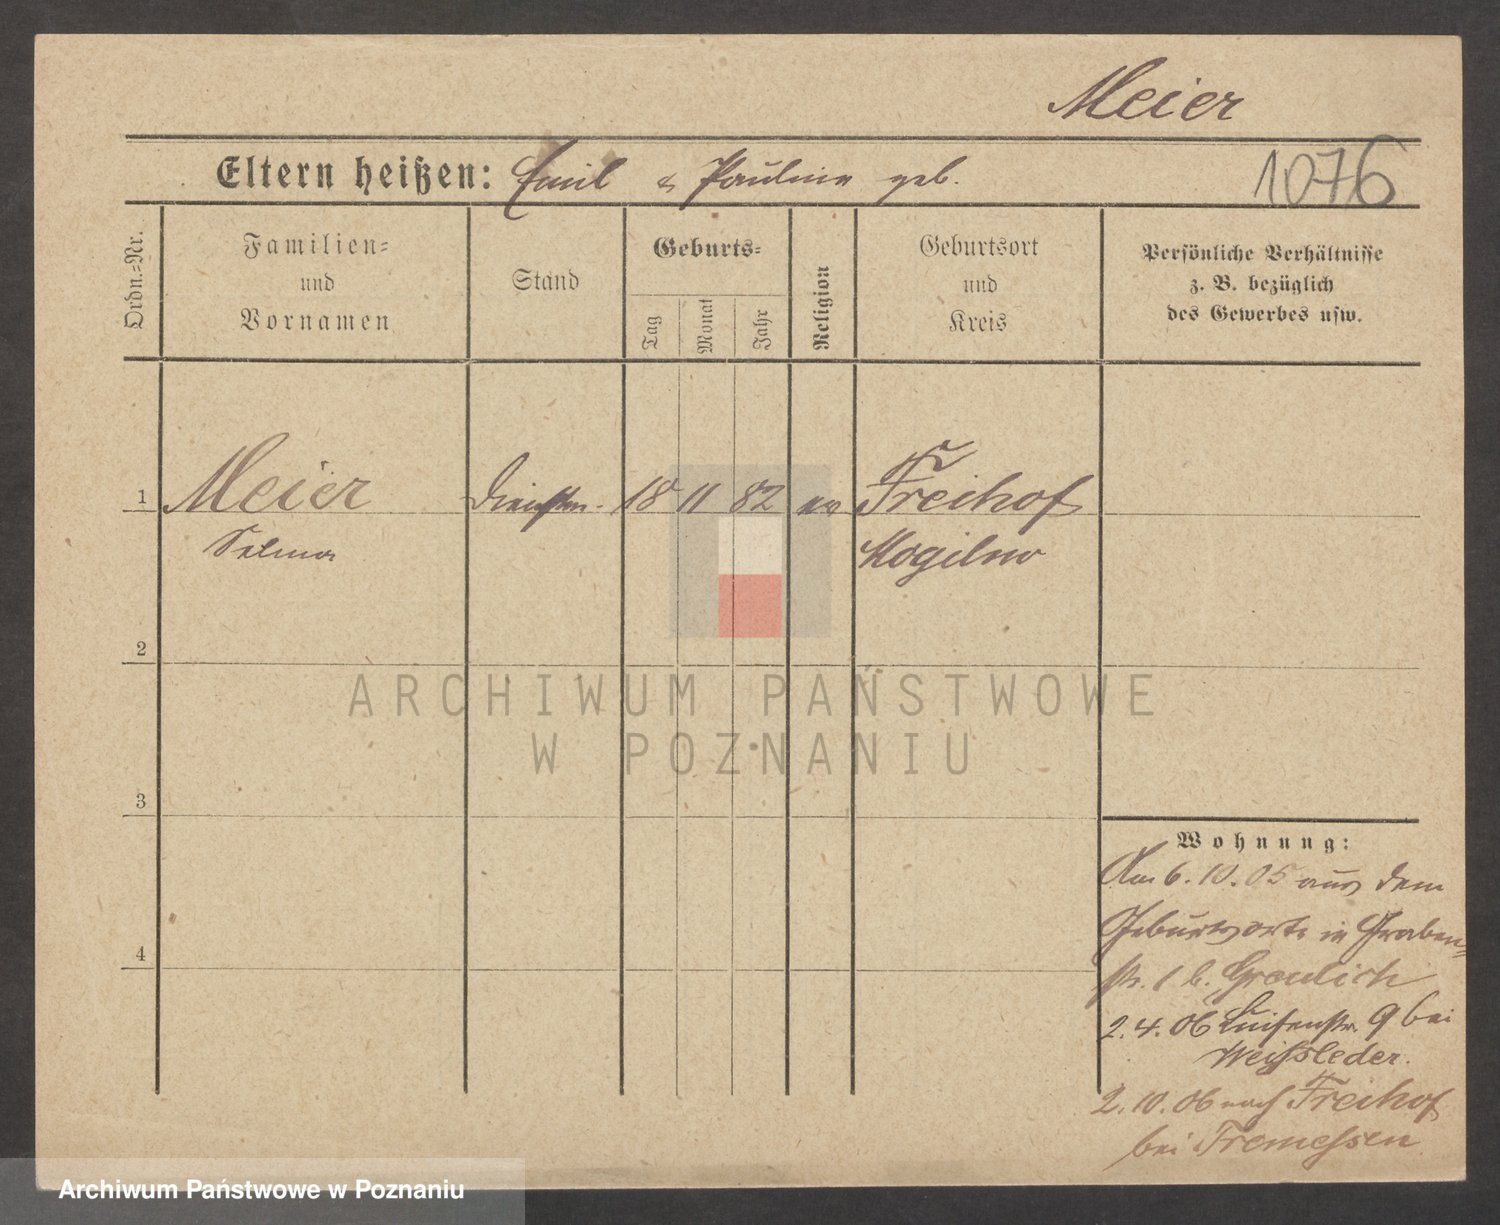 Meier
Eltern heißen: Emil & Pauline geb.
1076
Ordn.=Nr.
Familien=
und
Vornamen
Stand
Geburts=
Tag
Monat
Jahr
Religion
Geburtsort
und
Kreis
Persönliche Verhältnisse
z. B. bezüglich
des Gewerbes usw.
1 Meier 18 11 82 ev Freihof
Selma Mogilno
2
ARCHIWUM PAŃSTWOWE
W POZNANIU
3
Wohnung:
Am 6.10.05 aus dem
Geburtsorte in Graben=
str. 1 b. Greulich
4
2.4.06 Luisenstr. 9 bei
Weißleder.
2.10.06 nach Freihof
bei Tremessen
Archiwum Państwowe w Poznaniu